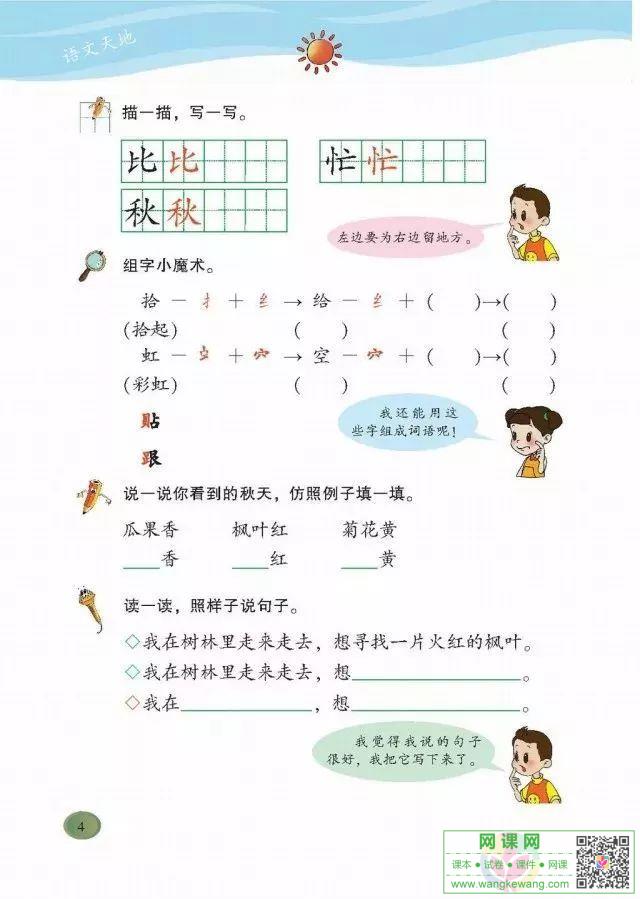 语文天地
描一描，写一写。
比比 忙忙
秋秋
左边要为右边留地方。
组字小魔术。
拾－扌＋纟→给－纟＋( )→( )
(拾起) ( ) ( )
虹－虫＋穴→空－穴＋( )→( )
(彩虹) ( ) ( )
贴
跟
我还能用这
些字组成词语呢！
说一说你看到的秋天，仿照例子填一填。
瓜果香 枫叶红 菊花黄
____香 ____红 ____黄
读一读，照样子说句子。
◇我在树林里走来走去，想寻找一片火红的枫叶。
◇我在树林里走来走去，想____________。
◇我在____________，想____________。
我觉得我说的句子
很好，我把它写下来了。
4
网课网
课本·试卷·课件·网课
www.wangkewang.com